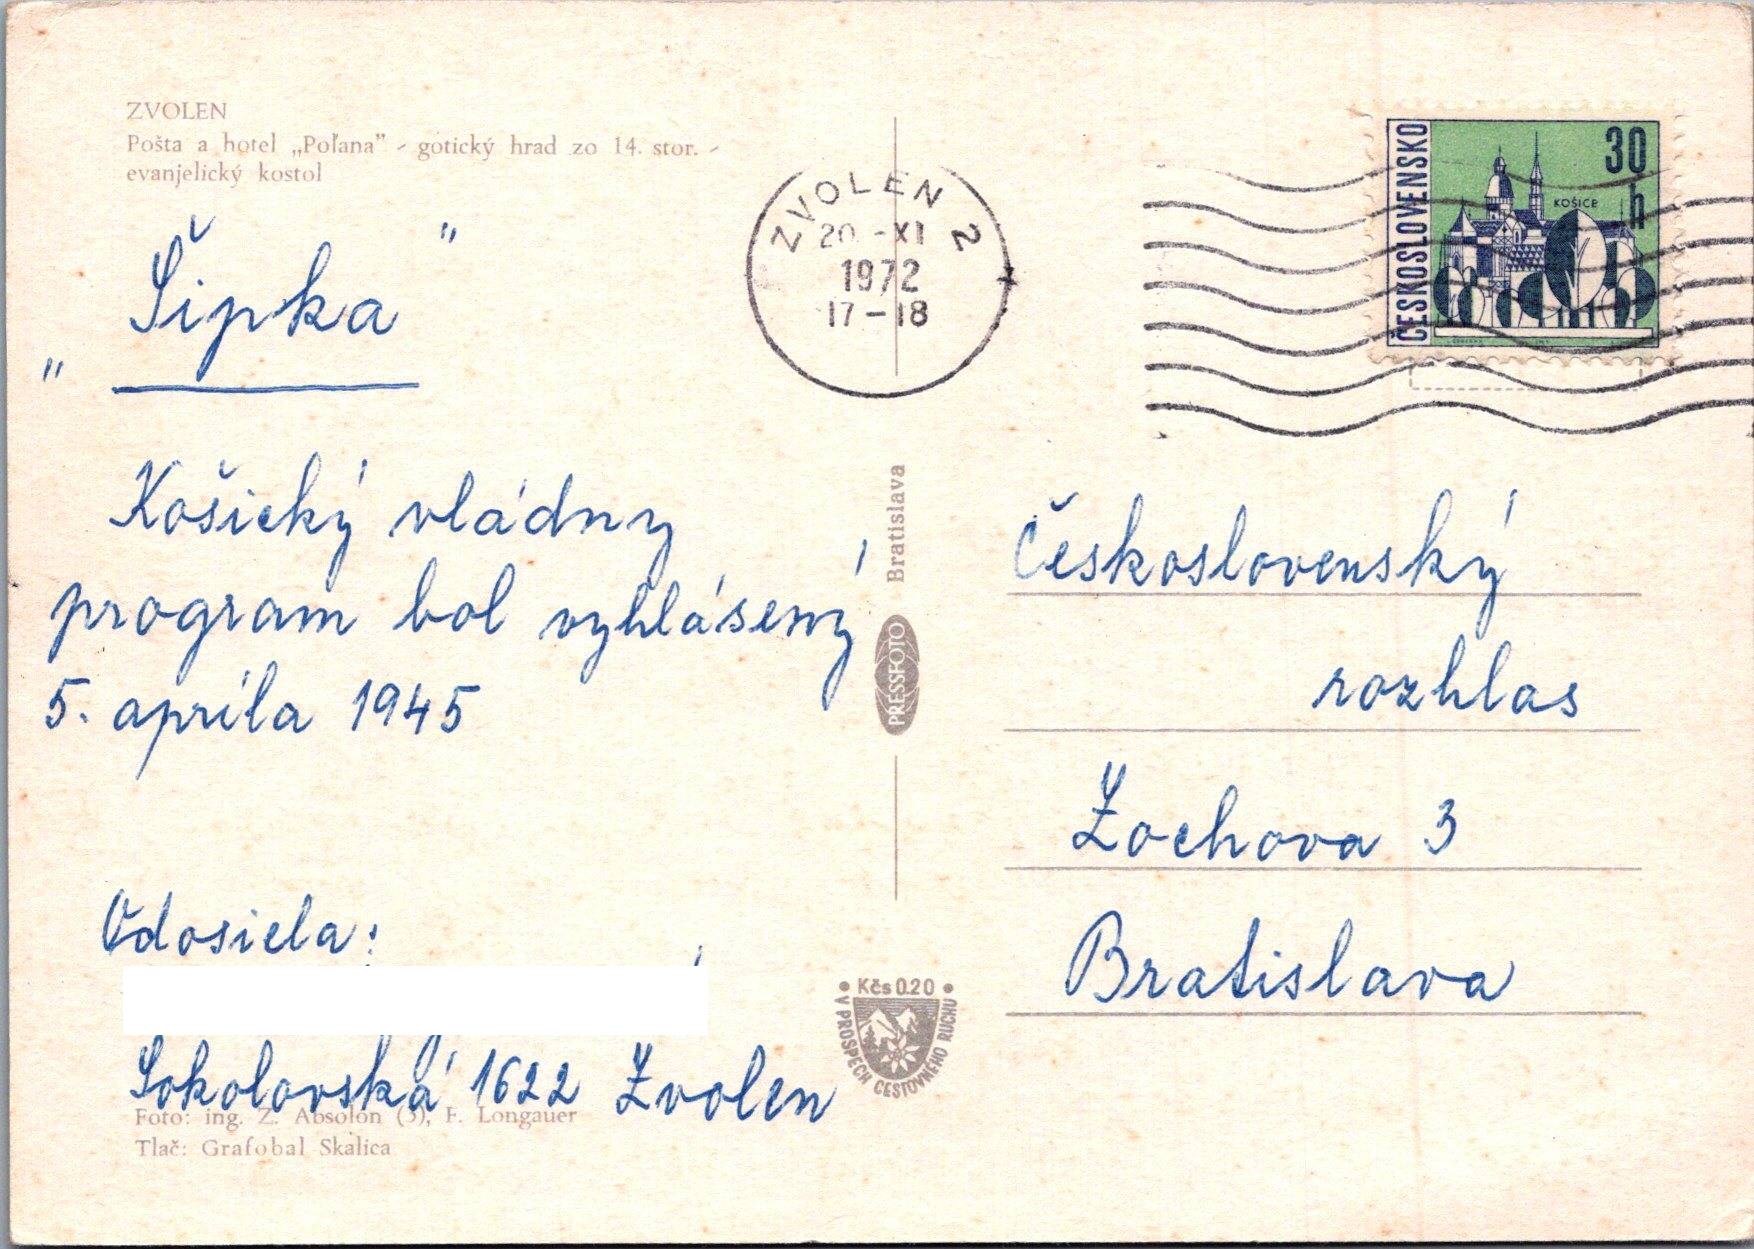 ZVOLEN
Pošta a hotel „Poľana” - gotický hrad zo 14. stor. -
evanjelický kostol
„Šipka"
Košický vládny
program bol vyhlásený
5. apríla 1945
Odosiela:
Sokolovská 1622 Zvolen
Foto: ing. Z. Absolon (3), F. Longauer
Tlač: Grafobal Skalica
ZVOLEN 2
20. -XI
1972
17-18
Bratislava
PRESSFOTO
• Kčs 0.20 •
V PROSPECH CESTOVNÉHO RUCHU
ČESKOSLOVENSKO
30
h
KOŠICE
Československý
rozhlas
Zochova 3
Bratislava